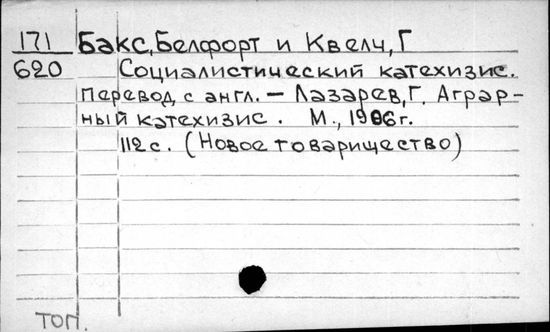 171 Бакс, Белфорт и Квелч, Г
620 Социалистический катехизис.
Перевод с англ. – Лазарев, Г. Аграр-
ный катехизис. М., 1906г.
112 с. (Новое товарищество)
ТОП.